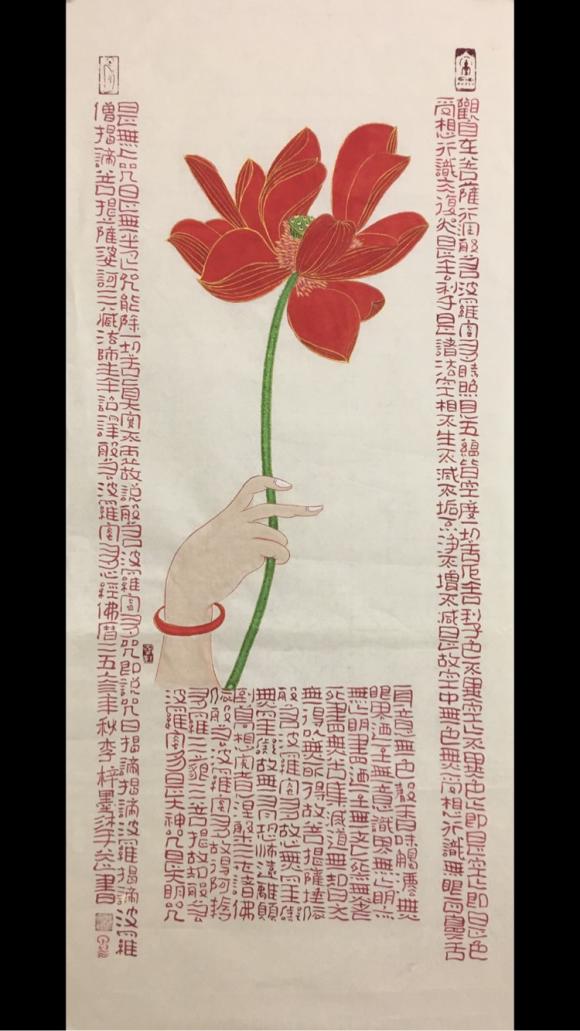 觀自在菩薩行深般若波羅蜜多時照見五蘊皆空度一切苦厄舍利子色不異空空不異色色即是空空即是色
受想行識亦復如是舍利子是諸法空相不生不滅不垢不淨不增不減是故空中無色無受想行識無眼耳鼻舌
身意無色聲香味觸法無
眼界乃至無意識界無無明亦
無無明盡乃至無老死亦無老
死盡無苦集滅道無智亦
無得以無所得故菩提薩埵依
般若波羅蜜多故心無罣礙
無罣礙故無有恐怖遠離顛
倒夢想究竟涅槃三世諸佛
依般若波羅蜜多故得阿耨
多羅三藐三菩提故知般若
波羅蜜多是大神咒是大明咒
是無上咒是無等等咒能除一切苦真實不虛故說般若波羅蜜多咒即說咒曰揭諦揭諦波羅揭諦波羅
僧揭諦菩提薩婆訶三藏法師玄奘譯般若波羅蜜多心經佛曆二五年秋李梓墨沐手書